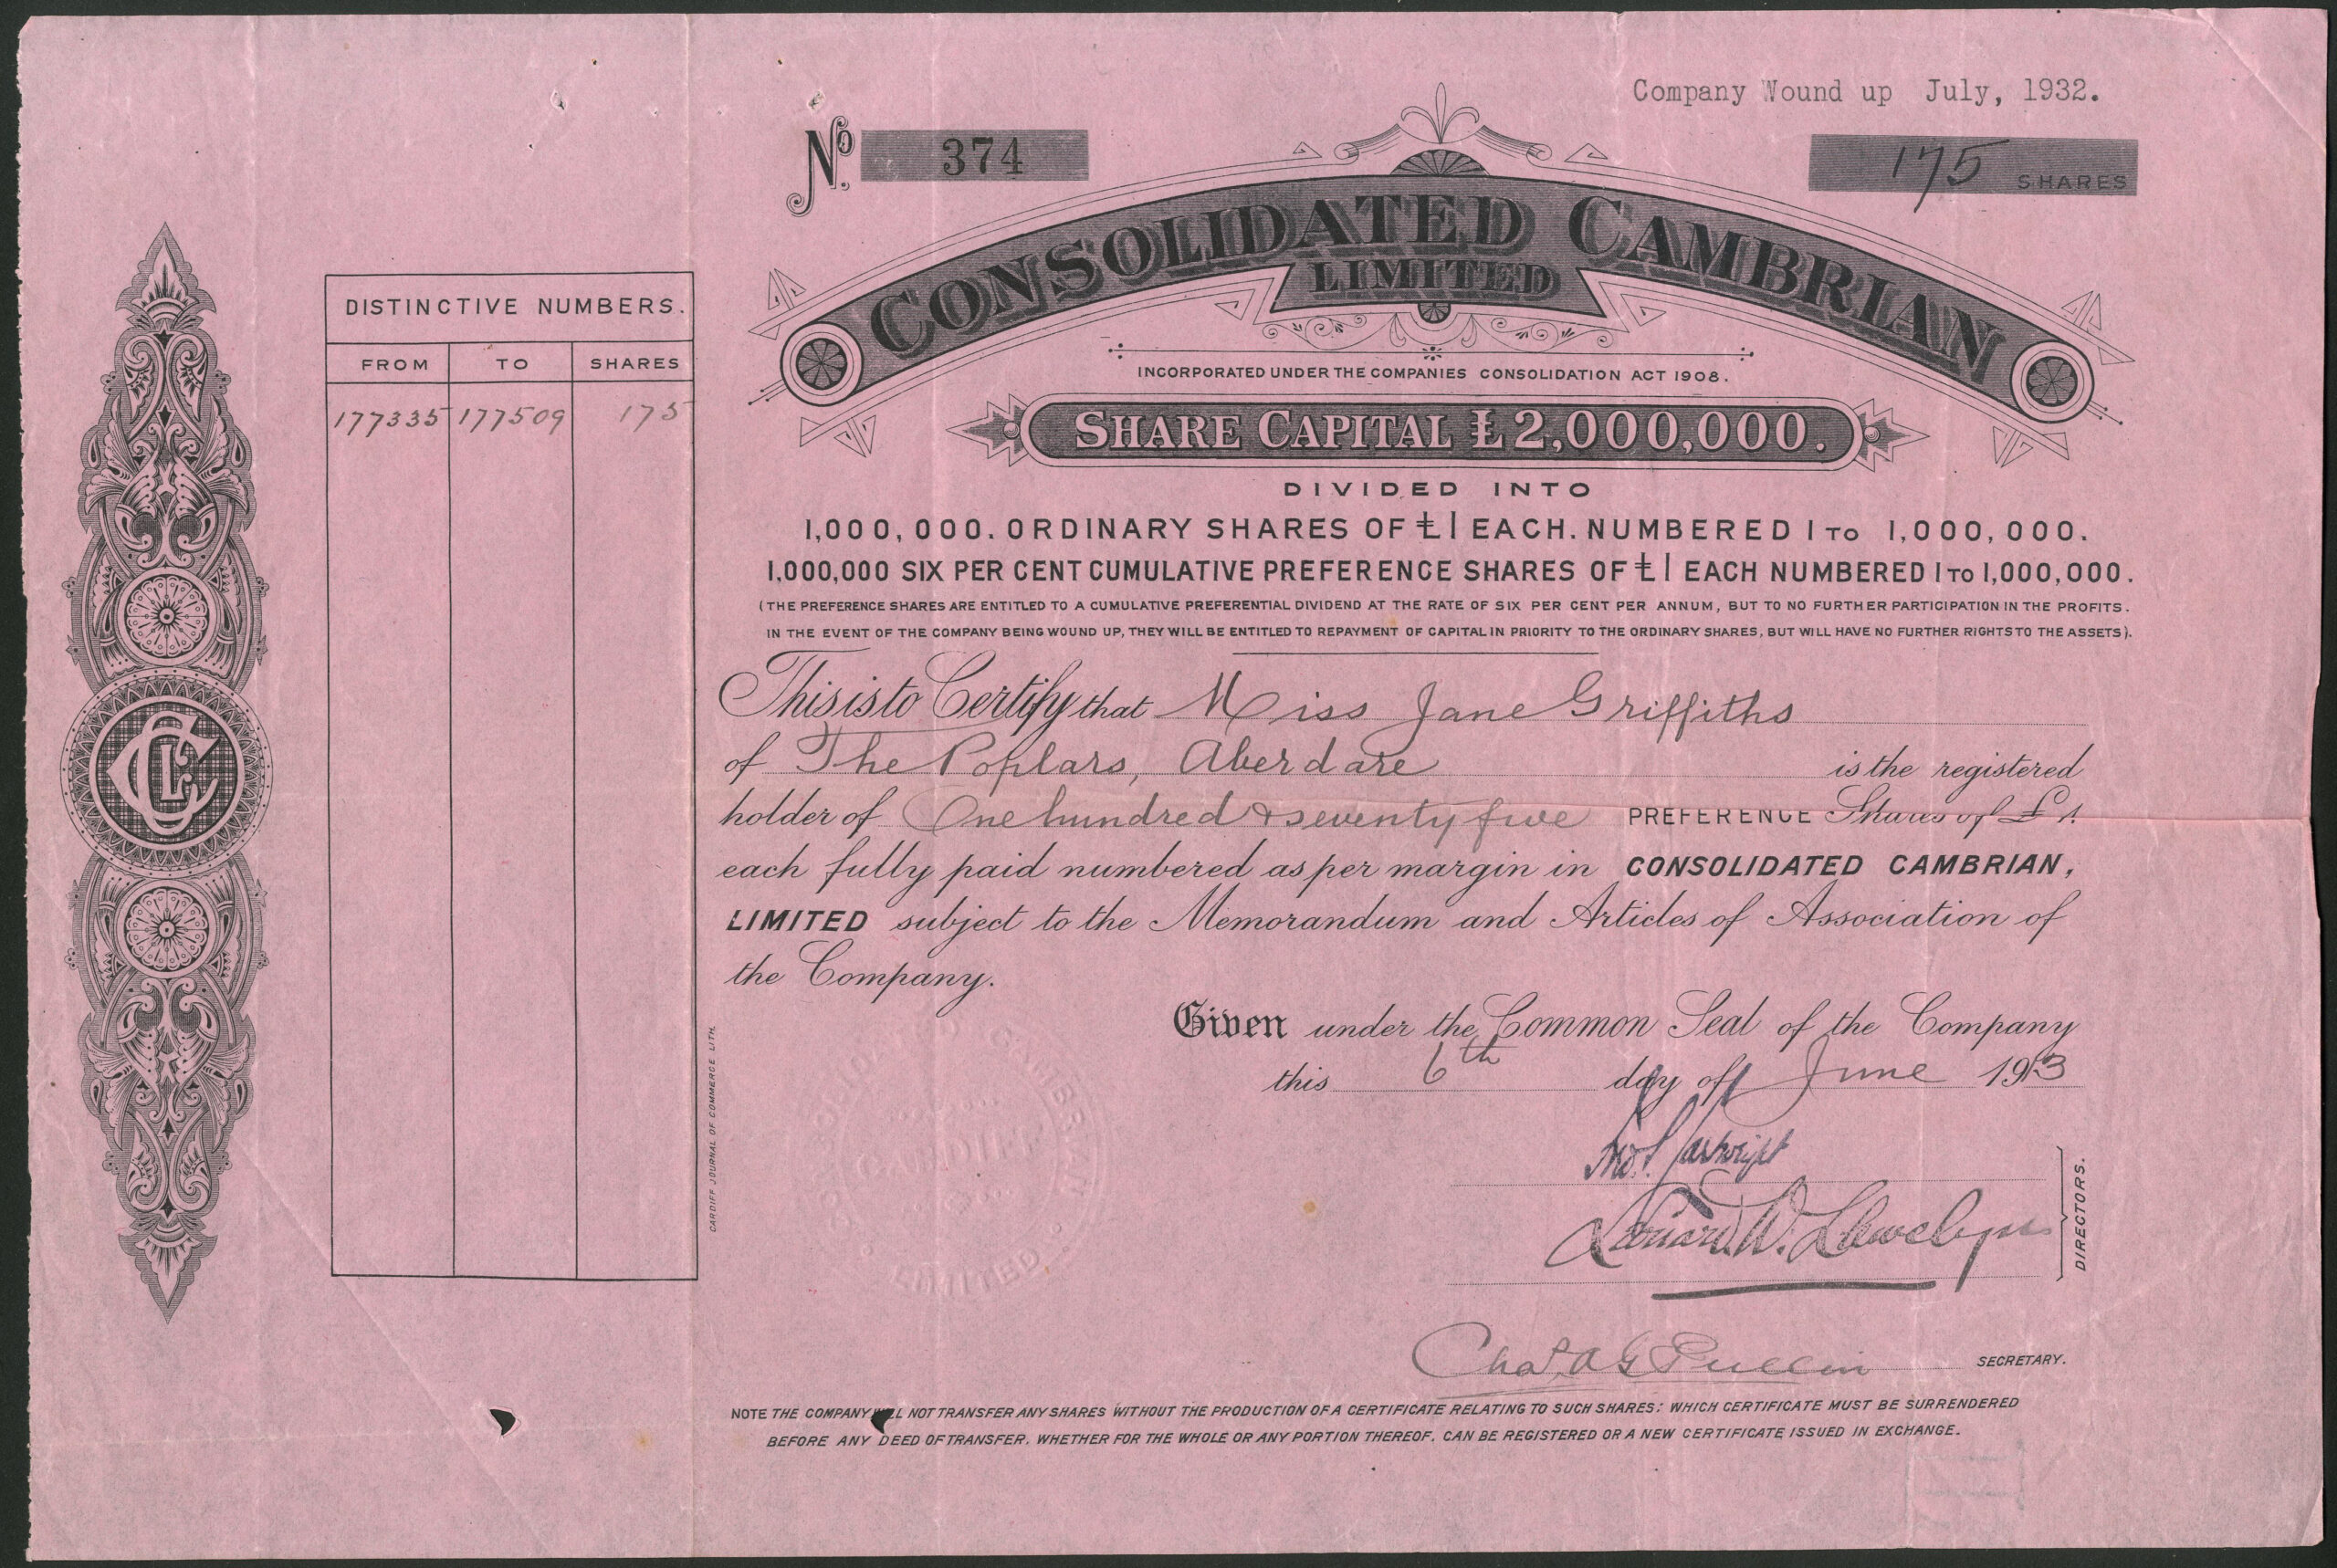 Company Wound up July, 1932.
No. 374
175 SHARES
CONSOLIDATED CAMBRIAN
LIMITED
INCORPORATED UNDER THE COMPANIES CONSOLIDATION ACT 1908.
SHARE CAPITAL £2,000,000.
DIVIDED INTO
1,000,000. ORDINARY SHARES OF £1 EACH. NUMBERED 1 TO 1,000,000.
1,000,000 SIX PER CENT CUMULATIVE PREFERENCE SHARES OF £1 EACH NUMBERED 1 TO 1,000,000.
(THE PREFERENCE SHARES ARE ENTITLED TO A CUMULATIVE PREFERENTIAL DIVIDEND AT THE RATE OF SIX PER CENT PER ANNUM, BUT TO NO FURTHER PARTICIPATION IN THE PROFITS.
IN THE EVENT OF THE COMPANY BEING WOUND UP, THEY WILL BE ENTITLED TO REPAYMENT OF CAPITAL IN PRIORITY TO THE ORDINARY SHARES, BUT WILL HAVE NO FURTHER RIGHTS TO THE ASSETS).
DISTINCTIVE NUMBERS.
FROM TO SHARES
177335 177509 175
This is to Certify that Miss Jane Griffiths
of The Poplars, Aberdare is the registered
holder of One hundred & seventy five PREFERENCE Shares of £1.
each fully paid numbered as per margin in CONSOLIDATED CAMBRIAN,
LIMITED subject to the Memorandum and Articles of Association of
the Company.
Given under the Common Seal of the Company
this 6th day of June 1913
Thos. Cartwright
Leonard W. Llewelyn
DIRECTORS.
Chas. A G Pullin SECRETARY.
NOTE THE COMPANY WILL NOT TRANSFER ANY SHARES WITHOUT THE PRODUCTION OF A CERTIFICATE RELATING TO SUCH SHARES: WHICH CERTIFICATE MUST BE SURRENDERED
BEFORE ANY DEED OF TRANSFER, WHETHER FOR THE WHOLE OR ANY PORTION THEREOF, CAN BE REGISTERED OR A NEW CERTIFICATE ISSUED IN EXCHANGE.
CARDIFF JOURNAL OF COMMERCE LITH.
CAMBRIAN
LIMITED